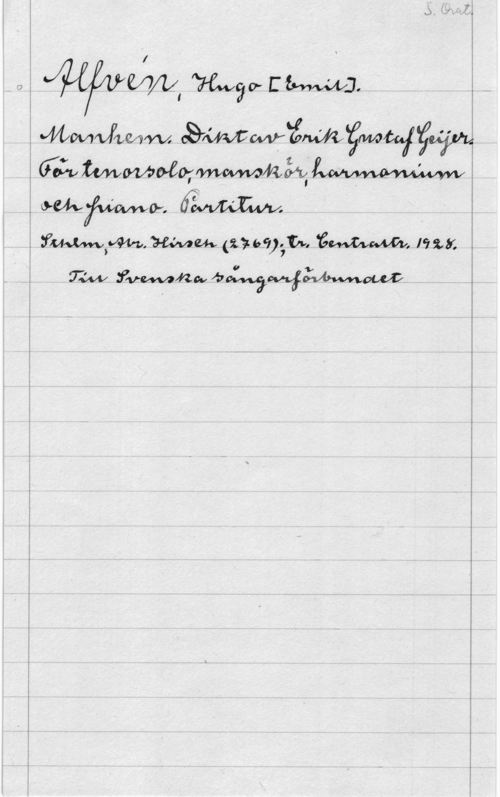 S. Orat.
Alfvén, Hugo [Emil].
Manhem. Dikt av Erik Gustaf Geijer.
För tenorsolo, manskör, harmonium
och piano. Partitur.
Sthlm, Abr. Hirsch (2769); tr. Centraltr. 1928.
Till Svenska sångarförbundet